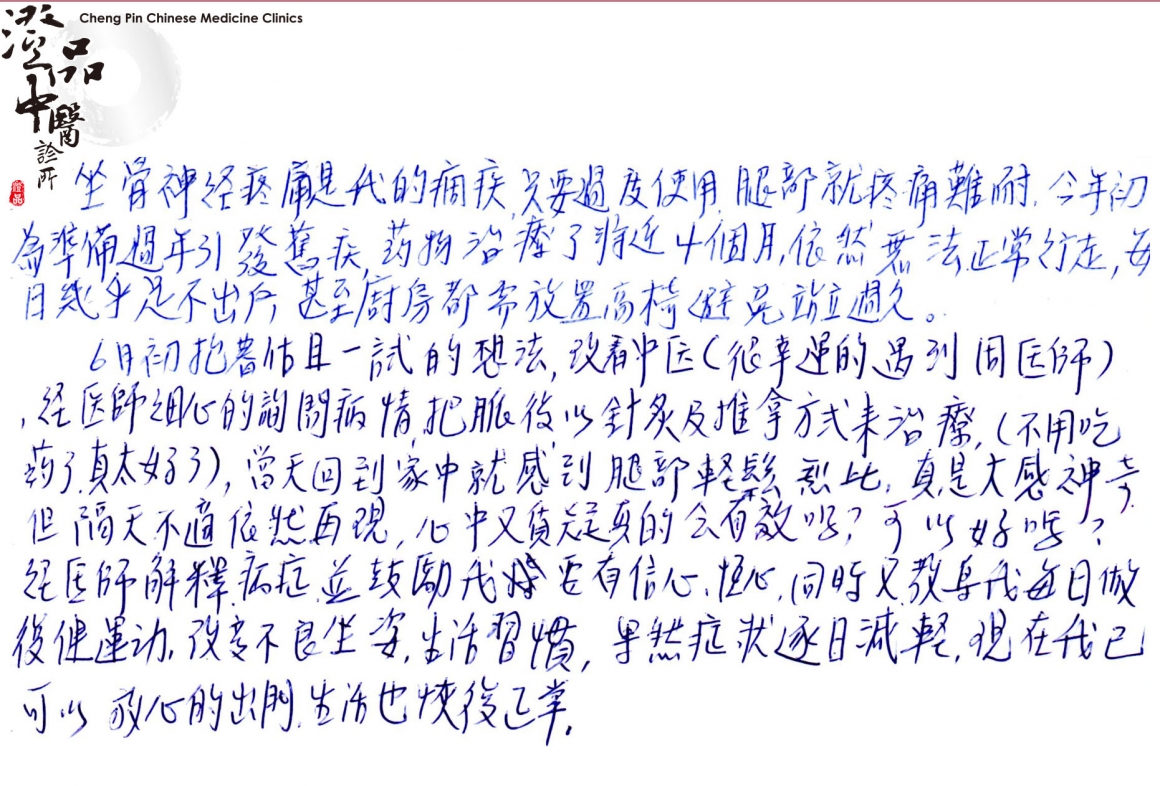 Cheng Pin Chinese Medicine Clinics
澄品
中醫
診所
坐骨神经疼痛是我的痼疾,只要過度使用,腿部就疼痛難耐.今年初
為準備過年引發舊疾,药物治療了將近4個月,依然無法正常行走,每
日幾乎足不出戶,甚至廚房都需放置高椅避免站立過久。
6月初抱著姑且一試的想法,改看中医(很幸運的遇到周医師)
,经医師細心的詢問病情,把脈後以針灸及推拿方式来治療,(不用吃
药了,真太好了),當天回到家中就感到腿部軽鬆
真是大感神奇.
但隔天不適依然再現,心中又質疑是真的会有效嗎?可以好嗎?
经医師解釋病症,並鼓勵我要有信心、恆心,同時又教導我每日做
復健運动,改变不良坐姿,生活習慣,果然症狀逐日減輕.現在我已
可以放心的出門,生活也恢復正常.